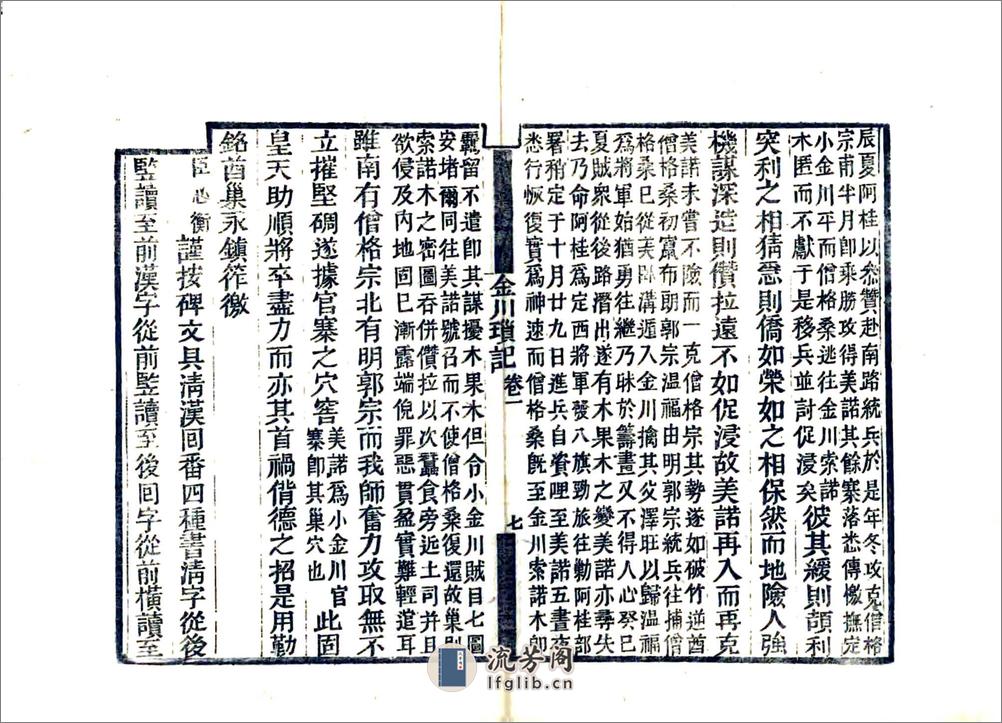 辰夏阿桂以參贊赴南路統兵於是年冬攻克僧格
宗甫半月卽乘勝攻得美諾其餘寨落悉傳檄撫定
小金川平而僧格桑逃往金川索諾
木匿而不獻于是移兵並討促浸矣
彼其緩則頡利
突利之相猜急則僑如榮如之相保然而地險人強
機謀深造則儹拉遠不如促浸故美諾再入而再克
美諾未嘗不險而一克僧格宗其勢遂如破竹逆酋
僧格桑初竄布朗郭宗溫福由明郭宗統兵往捕僧
格桑巳從美臥溝遁入金川擒其父澤旺以歸溫福
爲將軍始猶勇往繼乃昧於籌畫又不得人心癸巳
夏賊衆從後路潛出遂有木果木之變美諾亦尋失
去乃命阿桂爲定西將軍發八旗勁旅往勦阿桂部
署稍定于十月廿九日進兵自資哩至美諾五晝夜
悉行恢復實爲神速而僧格桑旣至金川索諾木卽
金川瑣記 卷一 七
羈留不遣卽其謀擾木果木但令小金川賊目七圖
安堵爾同往美諾號召而不使僧格桑復還故巢則
索諾木之密圖吞併儹拉以次蠶食旁近土司并且
欲侵及內地囘巳漸露端倪罪惡貫盈實難輕逭耳
雖南有僧格宗北有明郭宗而我師奮力攻取無不
立摧堅碉遂據官寨之穴窖
美諾爲小金川官
寨卽其巢穴也
此固
皇天助順將卒盡力而亦其首禍偝德之招是用勤
銘酋巢永鎮筰徼
臣心衡謹按碑文具淸漢囘番四種書淸字從後
豎讀至前漢字從前豎讀至後囘字從前橫讀至